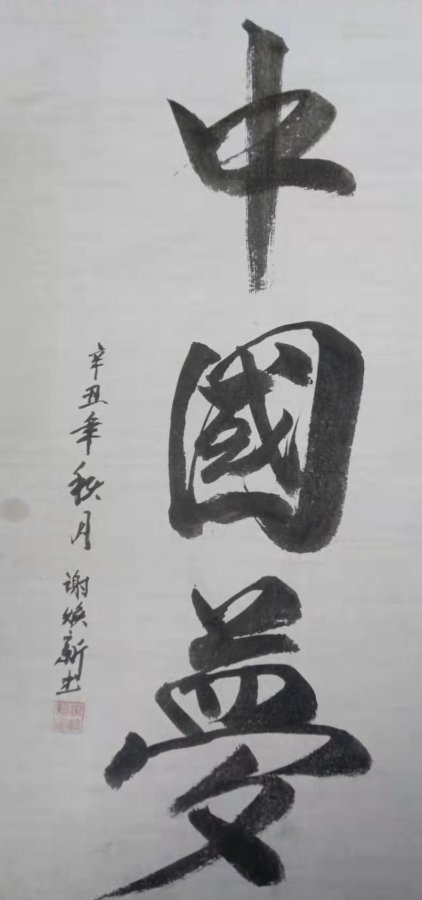 中國夢
辛丑年秋月 谢焕新书